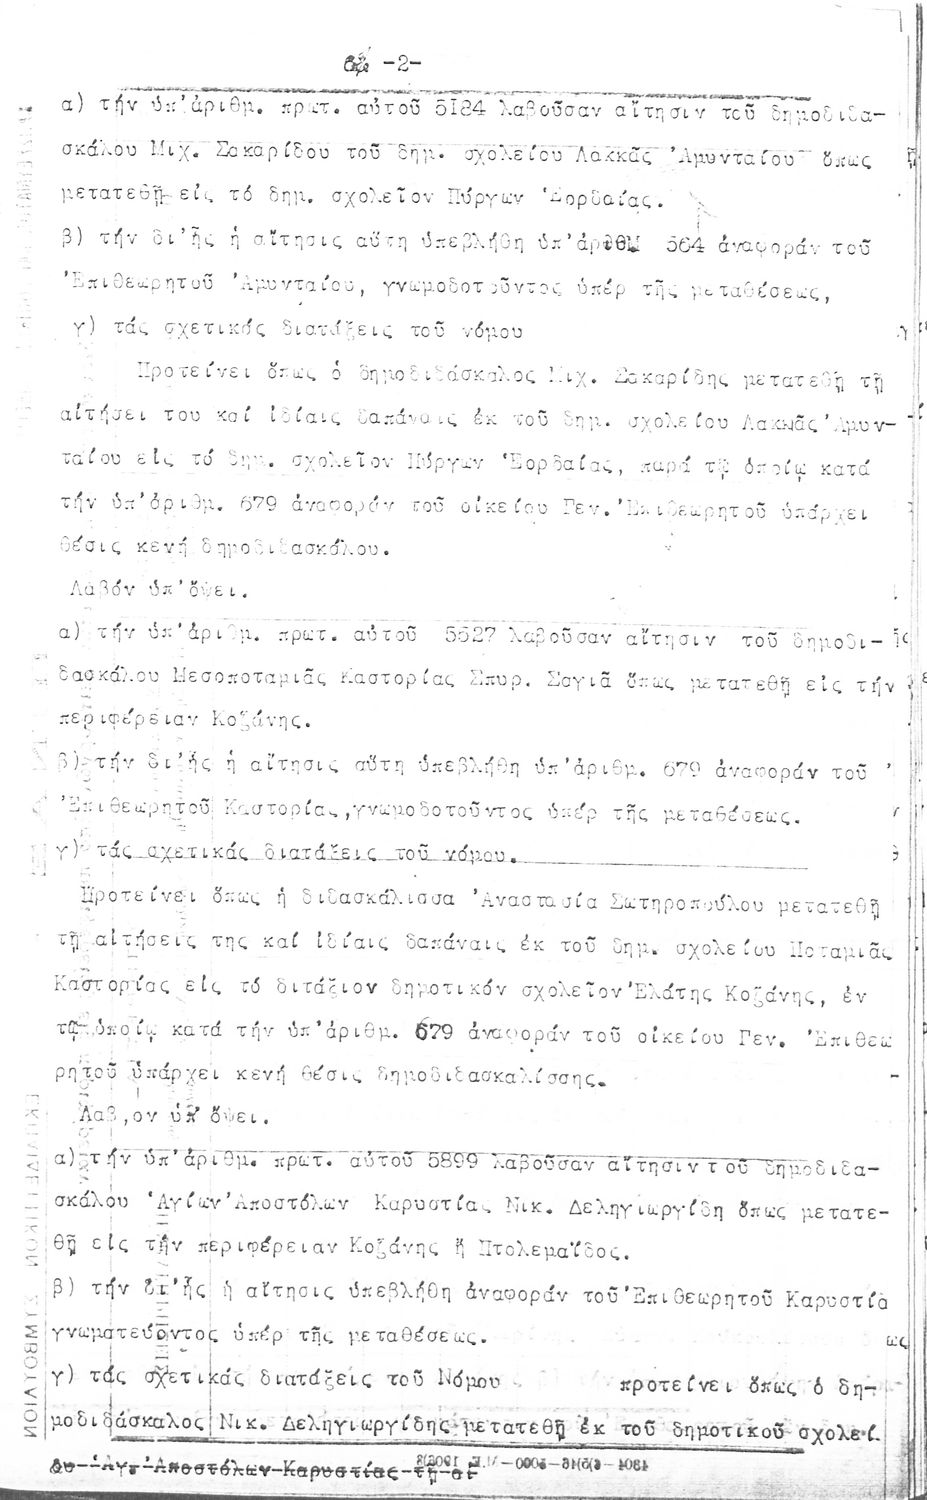 -2-
α) τήν ὑπ'ἀριθμ. πρωτ. αὐτοῦ 5I24 λαβοῦσαν αἴτησιν τοῦ δημοδιδα-
σκάλου Μιχ. Σακαρίδου τοῦ δημ. σχολείου Λακκᾶς 'Αμυνταίου ὅπως
μετατεθῇ εἰς τό δημ. σχολεῖον Πύργων 'Εορδαίας.
β) τήν δι'ἧς ἡ αἴτησις αὕτη ὑπεβλήθη ὑπ'ἀριθμ 564 ἀναφοράν τοῦ
'Επιθεωρητοῦ 'Αμυνταίου, γνωμοδοτοῦντος ὑπέρ τῆς μεταθέσεως,
γ) τάς σχετικάς διατάξεις τοῦ νόμου
Προτείνει ὅπως ὁ δημοδιδάσκαλος Μιχ. Σακαρίδης μετατεθῇ τῇ
αἰτήσει του καί ἰδίαις δαπάναις ἐκ τοῦ δημ. σχολείου Λακκᾶς 'Αμυν-
ταίου εἰς τό δημ. σχολεῖον Πύργων 'Εορδαίας, παρά τῷ ὁποίῳ κατά
τήν ὑπ'ἀριθμ. 679 ἀναφοράν τοῦ οἰκείου Γεν.'Επιθεωρητοῦ ὑπάρχει
θέσις κενή δημοδιδασκάλου.
Λαβόν ὑπ'ὄψει.
α) τήν ὑπ'ἀριθμ. πρωτ. αὐτοῦ 5527 λαβοῦσαν αἴτησιν τοῦ δημοδι-
δασκάλου Μεσοποταμιᾶς Καστορίας Σπυρ. Σαγιᾶ ὅπως μετατεθῇ εἰς τήν
περιφέρειαν Κοζάνης.
β) τήν δι'ἧς ἡ αἴτησις αὕτη ὑπεβλήθη ὑπ'ἀριθμ. 679 ἀναφοράν τοῦ '
'Επιθεωρητοῦ Καστορίας,γνωμοδοτοῦντος ὑπέρ τῆς μεταθέσεως.
γ) τάς σχετικάς διατάξεις τοῦ νόμου.
Προτείνει ὅπως ἡ διδασκάλισσα 'Αναστασία Σωτηροπούλου μετατεθῇ
τῇ αἰτήσεις της καί ἰδίαις δαπάναις ἐκ τοῦ δημ. σχολείου Ποταμιᾶς
Καστορίας εἰς τό διτάξιον δημοτικόν σχολεῖον'Ελάτης Κοζάνης, ἐν
τῷ ὁποίῳ κατά τήν ὑπ'ἀριθμ. 679 ἀναφοράν τοῦ οἰκείου Γεν. 'Επιθεω
ρητοῦ ὑπάρχει κενή θέσις δημοδιδασκαλίσσης.
Λαβ,ον ὑπ' ὄψει.
α) τήν ὑπ'ἀριθμ. πρωτ. αὐτοῦ 5899 λαβοῦσαν αἴτησιν τοῦ δημοδιδα-
σκάλου 'Αγίων'Αποστόλων Καρυστίας Νικ. Δεληγιωργίδη ὅπως μετατε-
θῇ εἰς τήν περιφέρειαν Κοζάνης ἤ Πτολεμαΐδος.
β) τήν δι'ἧς ἡ αἴτησις ὑπεβλήθη ἀναφοράν τοῦ'Επιθεωρητοῦ Καρυστία
γνωματεύοντος ὑπέρ τῆς μεταθέσεως.
γ) τάς σχετικάς διατάξεις τοῦ Νόμου προτείνει ὅπως ὁ δη-
μοδιδάσκαλος Νικ. Δεληγιωργίδης μετατεθῇ ἐκ τοῦ δημοτικοῦ σχολεί
ου 'Αγ. 'Αποστόλων Καρυστίας τῇ αἰ